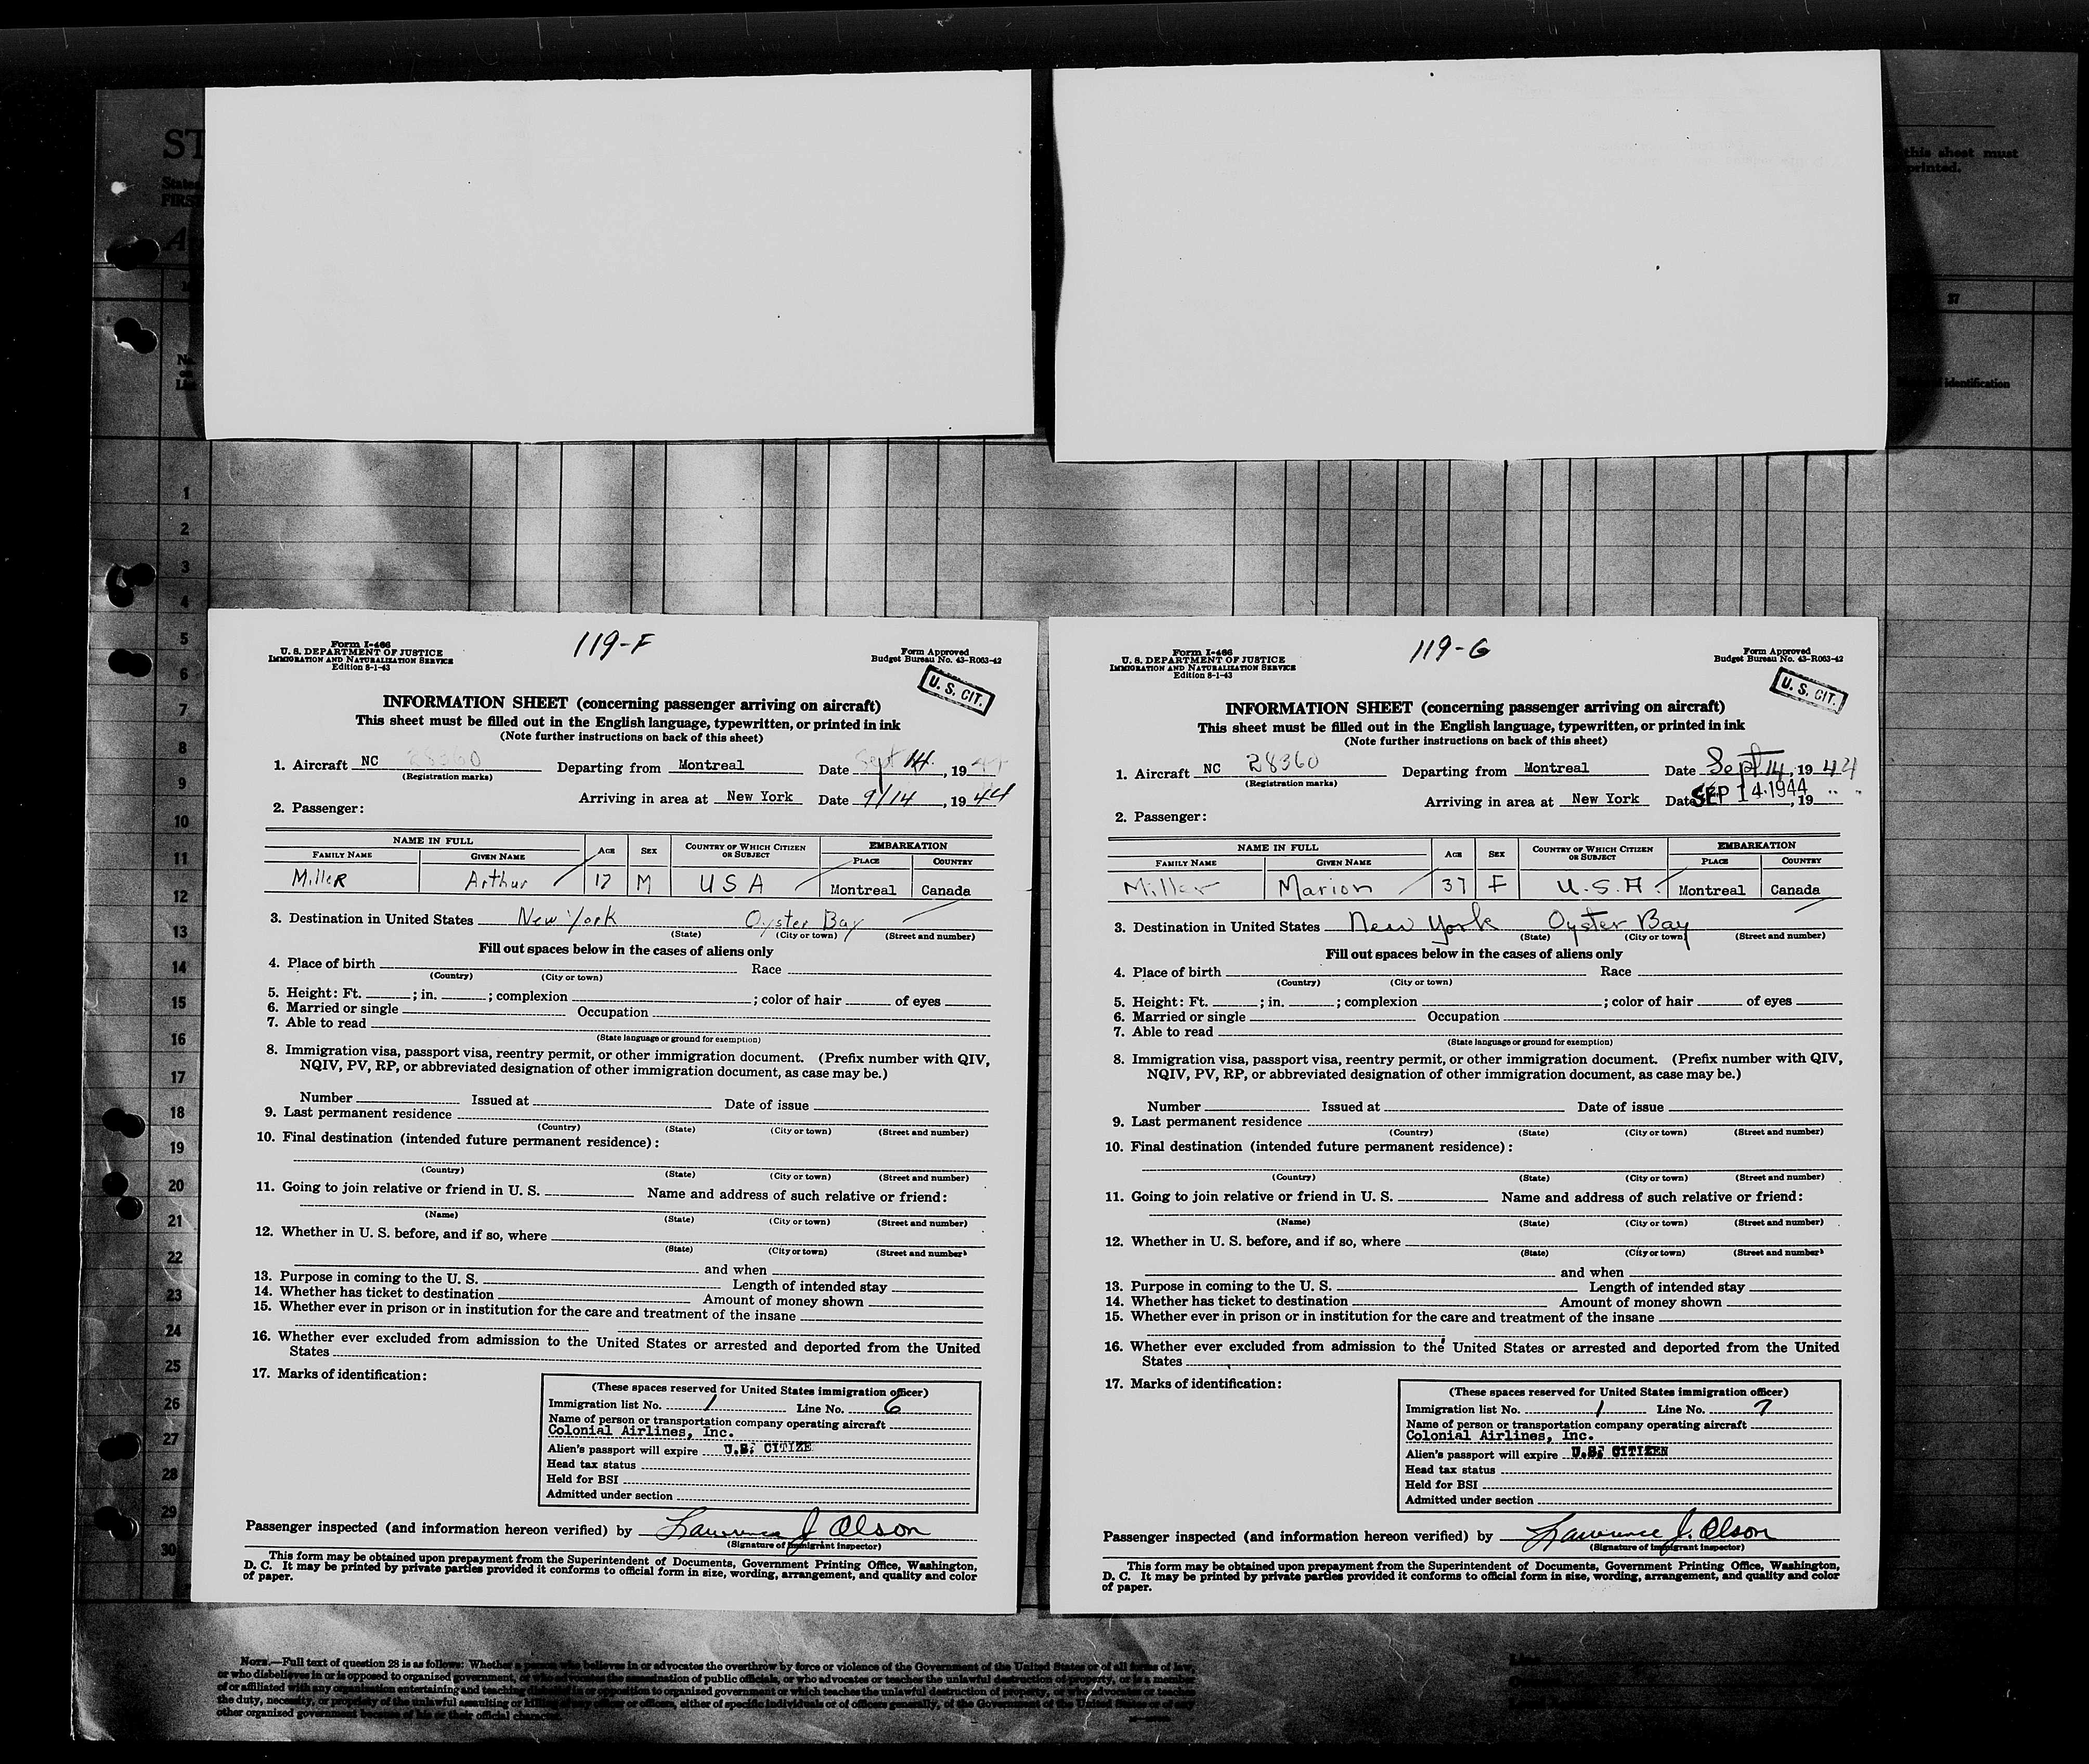 ST
State
FIRS
A
this sheet must
printed.
37
identification
1
2
3
4
5
6
7
8
9
10
11
12
13
14
15
16
17
18
19
20
21
22
23
24
25
26
27
28
29
30
Form I-466
U. S. DEPARTMENT OF JUSTICE
IMMIGRATION AND NATURALIZATION SERVICE
Edition 8-1-43
119-F
Form Approved
Budget Bureau No. 43-R063-42
U. S. CIT.
INFORMATION SHEET (concerning passenger arriving on aircraft)
This sheet must be filled out in the English language, typewritten, or printed in ink
(Note further instructions on back of this sheet)
1. Aircraft NC 28360 Departing from Montreal Date Sept 14, 19 44
(Registration marks)
Arriving in area at New York Date 9/14, 19 44
2. Passenger:
NAME IN FULL AGE SEX COUNTRY OF WHICH CITIZEN OR SUBJECT EMBARKATION
FAMILY NAME GIVEN NAME PLACE COUNTRY
Miller Arthur 17 M USA Montreal Canada
3. Destination in United States New York Oyster Bay
(State) (City or town) (Street and number)
Fill out spaces below in the cases of aliens only
4. Place of birth Race
(Country) (City or town)
5. Height: Ft. ; in. ; complexion ; color of hair of eyes
6. Married or single Occupation
7. Able to read
(State language or ground for exemption)
8. Immigration visa, passport visa, reentry permit, or other immigration document. (Prefix number with QIV,
NQIV, PV, RP, or abbreviated designation of other immigration document, as case may be.)
Number Issued at Date of issue
9. Last permanent residence
(Country) (State) (City or town) (Street and number)
10. Final destination (intended future permanent residence):
(Country) (State) (City or town) (Street and number)
11. Going to join relative or friend in U. S. Name and address of such relative or friend:
(Name) (State) (City or town) (Street and number)
12. Whether in U. S. before, and if so, where
(State) (City or town) (Street and number)
and when
13. Purpose in coming to the U. S. Length of intended stay
14. Whether has ticket to destination Amount of money shown
15. Whether ever in prison or in institution for the care and treatment of the insane
16. Whether ever excluded from admission to the United States or arrested and deported from the United
States
17. Marks of identification:
(These spaces reserved for United States immigration officer)
Immigration list No. 1 Line No. 6
Name of person or transportation company operating aircraft
Colonial Airlines, Inc.
Alien's passport will expire U.S. CITIZE
Head tax status
Held for BSI
Admitted under section
Passenger inspected (and information hereon verified) by Lawrence J Olson
(Signature of immigrant inspector)
This form may be obtained upon prepayment from the Superintendent of Documents, Government Printing Office, Washington,
D. C. It may be printed by private parties provided it conforms to official form in size, wording, arrangement, and quality and color
of paper.
Form I-466
U. S. DEPARTMENT OF JUSTICE
IMMIGRATION AND NATURALIZATION SERVICE
Edition 8-1-43
119-G
Form Approved
Budget Bureau No. 43-R063-42
U. S. CIT.
INFORMATION SHEET (concerning passenger arriving on aircraft)
This sheet must be filled out in the English language, typewritten, or printed in ink
(Note further instructions on back of this sheet)
1. Aircraft NC 28360 Departing from Montreal Date Sept 14, 19 44
(Registration marks)
Arriving in area at New York Date SEP 14 1944, 19
2. Passenger:
NAME IN FULL AGE SEX COUNTRY OF WHICH CITIZEN OR SUBJECT EMBARKATION
FAMILY NAME GIVEN NAME PLACE COUNTRY
Miller Marion 37 F U.S.A. Montreal Canada
3. Destination in United States New York Oyster Bay
(State) (City or town) (Street and number)
Fill out spaces below in the cases of aliens only
4. Place of birth Race
(Country) (City or town)
5. Height: Ft. ; in. ; complexion ; color of hair of eyes
6. Married or single Occupation
7. Able to read
(State language or ground for exemption)
8. Immigration visa, passport visa, reentry permit, or other immigration document. (Prefix number with QIV,
NQIV, PV, RP, or abbreviated designation of other immigration document, as case may be.)
Number Issued at Date of issue
9. Last permanent residence
(Country) (State) (City or town) (Street and number)
10. Final destination (intended future permanent residence):
(Country) (State) (City or town) (Street and number)
11. Going to join relative or friend in U. S. Name and address of such relative or friend:
(Name) (State) (City or town) (Street and number)
12. Whether in U. S. before, and if so, where
(State) (City or town) (Street and number)
and when
13. Purpose in coming to the U. S. Length of intended stay
14. Whether has ticket to destination Amount of money shown
15. Whether ever in prison or in institution for the care and treatment of the insane
16. Whether ever excluded from admission to the United States or arrested and deported from the United
States
17. Marks of identification:
(These spaces reserved for United States immigration officer)
Immigration list No. 1 Line No. 7
Name of person or transportation company operating aircraft
Colonial Airlines, Inc.
Alien's passport will expire U.S. CITIZEN
Head tax status
Held for BSI
Admitted under section
Passenger inspected (and information hereon verified) by Lawrence J. Olson
(Signature of immigrant inspector)
This form may be obtained upon prepayment from the Superintendent of Documents, Government Printing Office, Washington,
D. C. It may be printed by private parties provided it conforms to official form in size, wording, arrangement, and quality and color
of paper.
NOTE.—Full text of question 28 is as follows: Whether a person who believes in or advocates the overthrow by force or violence of the Government of the United States or of all forms of law,
or who disbelieves in or is opposed to organized government, or who advocates the assassination of public officials, or who advocates or teaches the unlawful destruction of property, or is a member
of or affiliated with any organization entertaining and teaching disbelief in or opposition to organized government or which teaches the unlawful destruction of property, or who advocates or teaches
the duty, necessity, or propriety of the unlawful assaulting or killing of any officer or officers, either of specific individuals or of officers generally, of the Government of the United States or of any
other organized government because of his or their official character.